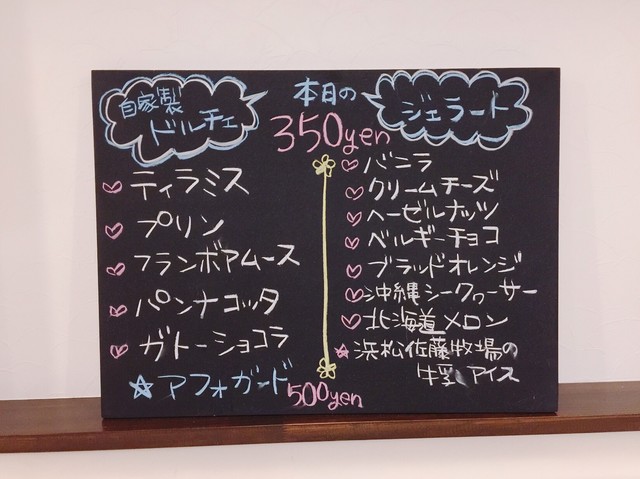 自家製
ドルチェ
本日の
350yen
ジェラート
ティラミス
プリン
フランボアムース
パンナコッタ
ガトーショコラ
アフォガード 500yen
バニラ
クリームチーズ
ヘーゼルナッツ
ベルギーチョコ
ブラッドオレンジ
沖縄シークヮーサー
北海道メロン
浜松佐藤牧場の
牛乳アイス